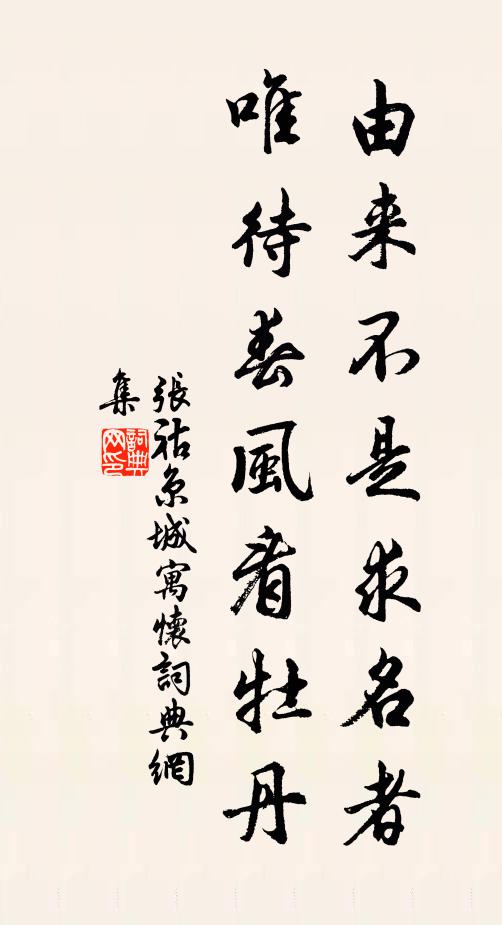 由来不是求名者
唯待春風看牡丹
張祜京城寓懷詞典網
集
詞典
网印